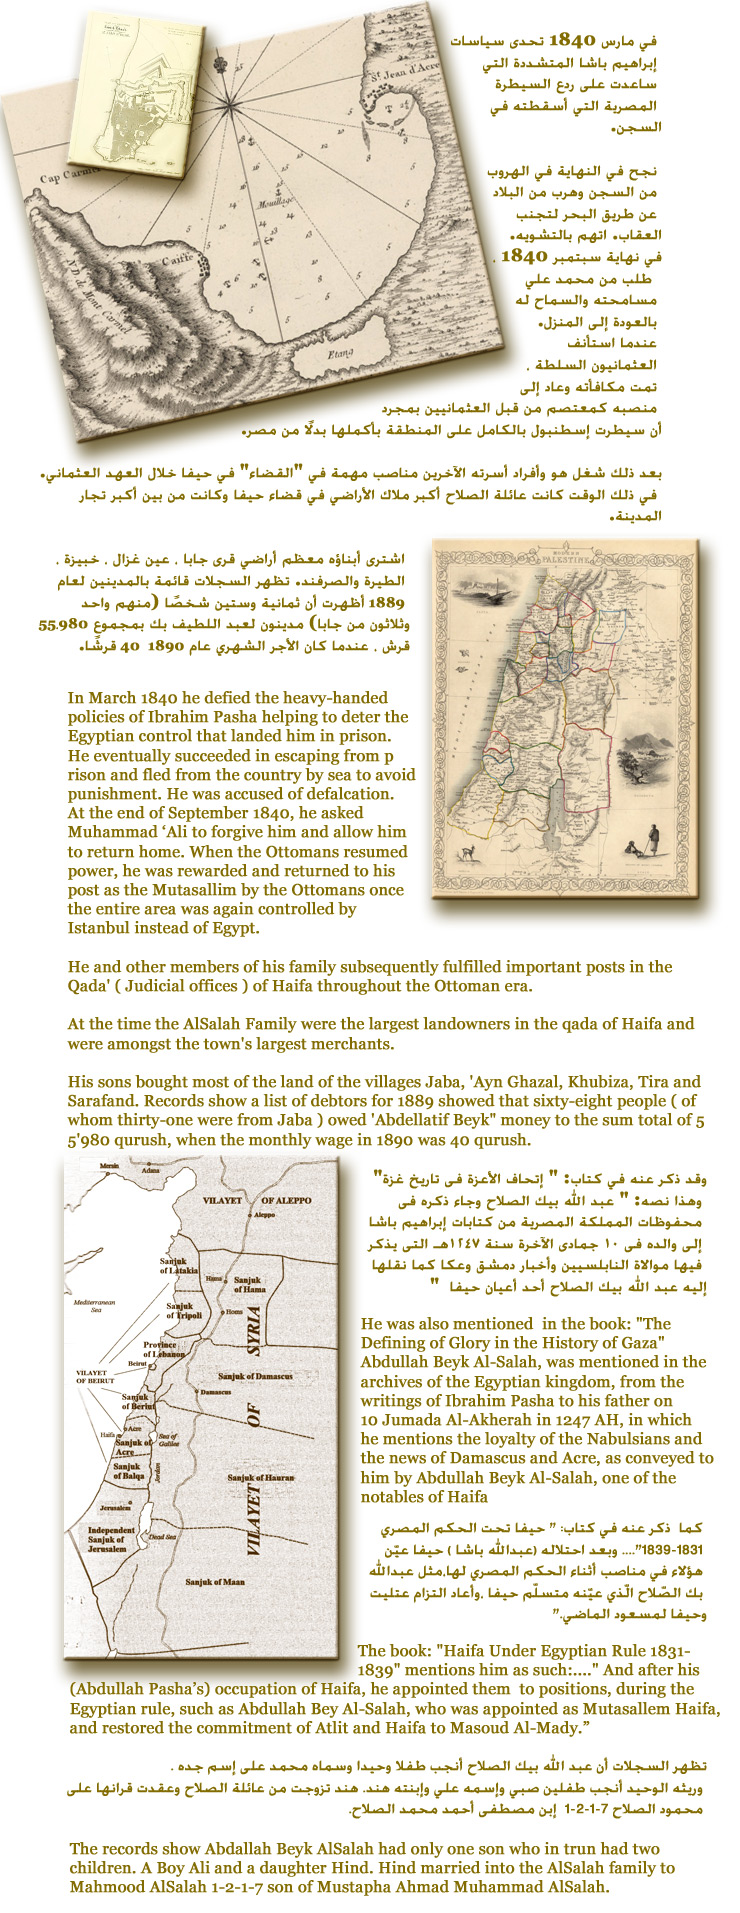 St Jean d'Acre
Cap Carmel
Mouillage
Caiffe
N.D. de Mont Carmel
Etang
في مارس 1840 تحدى سياسات
إبراهيم باشا المتشددة التي
ساعدت على ردع السيطرة
المصرية التي أسقطته في
السجن.
نجح في النهاية في الهروب
من السجن وهرب من البلاد
عن طريق البحر لتجنب
العقاب. اتهم بالتشويه.
في نهاية سبتمبر 1840 ،
طلب من محمد علي
مسامحته والسماح له
بالعودة إلى المنزل.
عندما استأنف
العثمانيون السلطة ،
تمت مكافأته وعاد إلى
منصبه كمعتصم من قبل العثمانيين بمجرد
أن سيطرت إسطنبول بالكامل على المنطقة بأكملها بدلًا من مصر.
بعد ذلك شغل هو وأفراد أسرته الآخرين مناصب مهمة في "القضاء" في حيفا خلال العهد العثماني.
في ذلك الوقت كانت عائلة الصلاح أكبر ملاك الأراضي في قضاء حيفا وكانت من بين أكبر تجار
المدينة.
اشترى أبناؤه معظم أراضي قرى جابا ، عين غزال ، خبيزة ،
الطيرة والصرفند. تظهر السجلات قائمة بالمدينين لعام
1889 أظهرت أن ثمانية وستين شخصًا (منهم واحد
وثلاثون من جابا) مدينون لعبد اللطيف بك بمجموع 55،980
قرش ، عندما كان الأجر الشهري عام 1890 40 قرشًا.
MODERN
PALESTINE
In March 1840 he defied the heavy-handed
policies of Ibrahim Pasha helping to deter the
Egyptian control that landed him in prison.
He eventually succeeded in escaping from p
rison and fled from the country by sea to avoid
punishment. He was accused of defalcation.
At the end of September 1840, he asked
Muhammad ‘Ali to forgive him and allow him
to return home. When the Ottomans resumed
power, he was rewarded and returned to his
post as the Mutasallim by the Ottomans once
the entire area was again controlled by
Istanbul instead of Egypt.
He and other members of his family subsequently fulfilled important posts in the
Qada' ( Judicial offices ) of Haifa throughout the Ottoman era.
At the time the AlSalah Family were the largest landowners in the qada of Haifa and
were amongst the town's largest merchants.
His sons bought most of the land of the villages Jaba, 'Ayn Ghazal, Khubiza, Tira and
Sarafand. Records show a list of debtors for 1889 showed that sixty-eight people ( of
whom thirty-one were from Jaba ) owed 'Abdellatif Beyk" money to the sum total of 5
5'980 qurush, when the monthly wage in 1890 was 40 qurush.
Mersin
Adana
VILAYET OF ALEPPO
Aleppo
Sanjuk
of Latakia
Hama
Sanjuk
of Hama
Mediterranean
Sea
Sanjuk
of Tripoli
Homs
Province
of Lebanon
Beirut
VILAYET
OF BEIRUT
Sanjuk of Damascus
Damascus
Sanjuk
of Beriut
Acre
Haifa
Sea of
Galilee
Sanjuk of
Acre
Sanjuk
of Balqa
Jordan
Sanjuk of Hauran
Jerusalem
Independent
Sanjuk of
Jerusalem
Dead Sea
Sanjuk of Maan
VILAYET OF SYRIA
وقد ذكر عنه في كتاب: " إتحاف الأعزة فى تاريخ غزة"
وهذا نصه: " عبد الله بيك الصلاح وجاء ذكره فى
محفوظات المملكة المصرية من كتابات إبراهيم باشا
إلى والده فى ١٠ جمادى الآخرة سنة ١٢٤٧هـ التى يذكر
فيها موالاة النابلسيين وأخبار دمشق وعكا كما نقلها
إليه عبد الله بيك الصلاح أحد أعيان حيفا "
He was also mentioned in the book: "The
Defining of Glory in the History of Gaza"
Abdullah Beyk Al-Salah, was mentioned in the
archives of the Egyptian kingdom, from the
writings of Ibrahim Pasha to his father on
10 Jumada Al-Akherah in 1247 AH, in which
he mentions the loyalty of the Nabulsians and
the news of Damascus and Acre, as conveyed to
him by Abdullah Beyk Al-Salah, one of the
notables of Haifa
كما ذكر عنه في كتاب: " حيفا تحت الحكم المصري
1831-1839".... وبعد احتلاله (عبدالله باشا ) حيفا عيّن
هؤلاء في مناصب أثناء الحكم المصري لها،مثل عبدالله
بك الصّلاح الّذي عيّنه متسلّم حيفا ،وأعاد التزام عتليت
وحيفا لمسعود الماضي."
The book: "Haifa Under Egyptian Rule 1831-
1839" mentions him as such:...." And after his
(Abdullah Pasha’s) occupation of Haifa, he appointed them to positions, during the
Egyptian rule, such as Abdullah Bey Al-Salah, who was appointed as Mutasallem Haifa,
and restored the commitment of Atlit and Haifa to Masoud Al-Mady.”
تظهر السجلات أن عبد الله بيك الصلاح أنجب طفلا وحيدا وسماه محمد على إسم جده .
وريثه الوحيد أنجب طفلين صبي وإسمه علي وإبنته هند. هند تزوجت من عائلة الصلاح وعقدت قرانها على
محمود الصلاح 7-1-2-1 إبن مصطفى أحمد محمد الصلاح.
The records show Abdallah Beyk AlSalah had only one son who in trun had two
children. A Boy Ali and a daughter Hind. Hind married into the AlSalah family to
Mahmood AlSalah 1-2-1-7 son of Mustapha Ahmad Muhammad AlSalah.